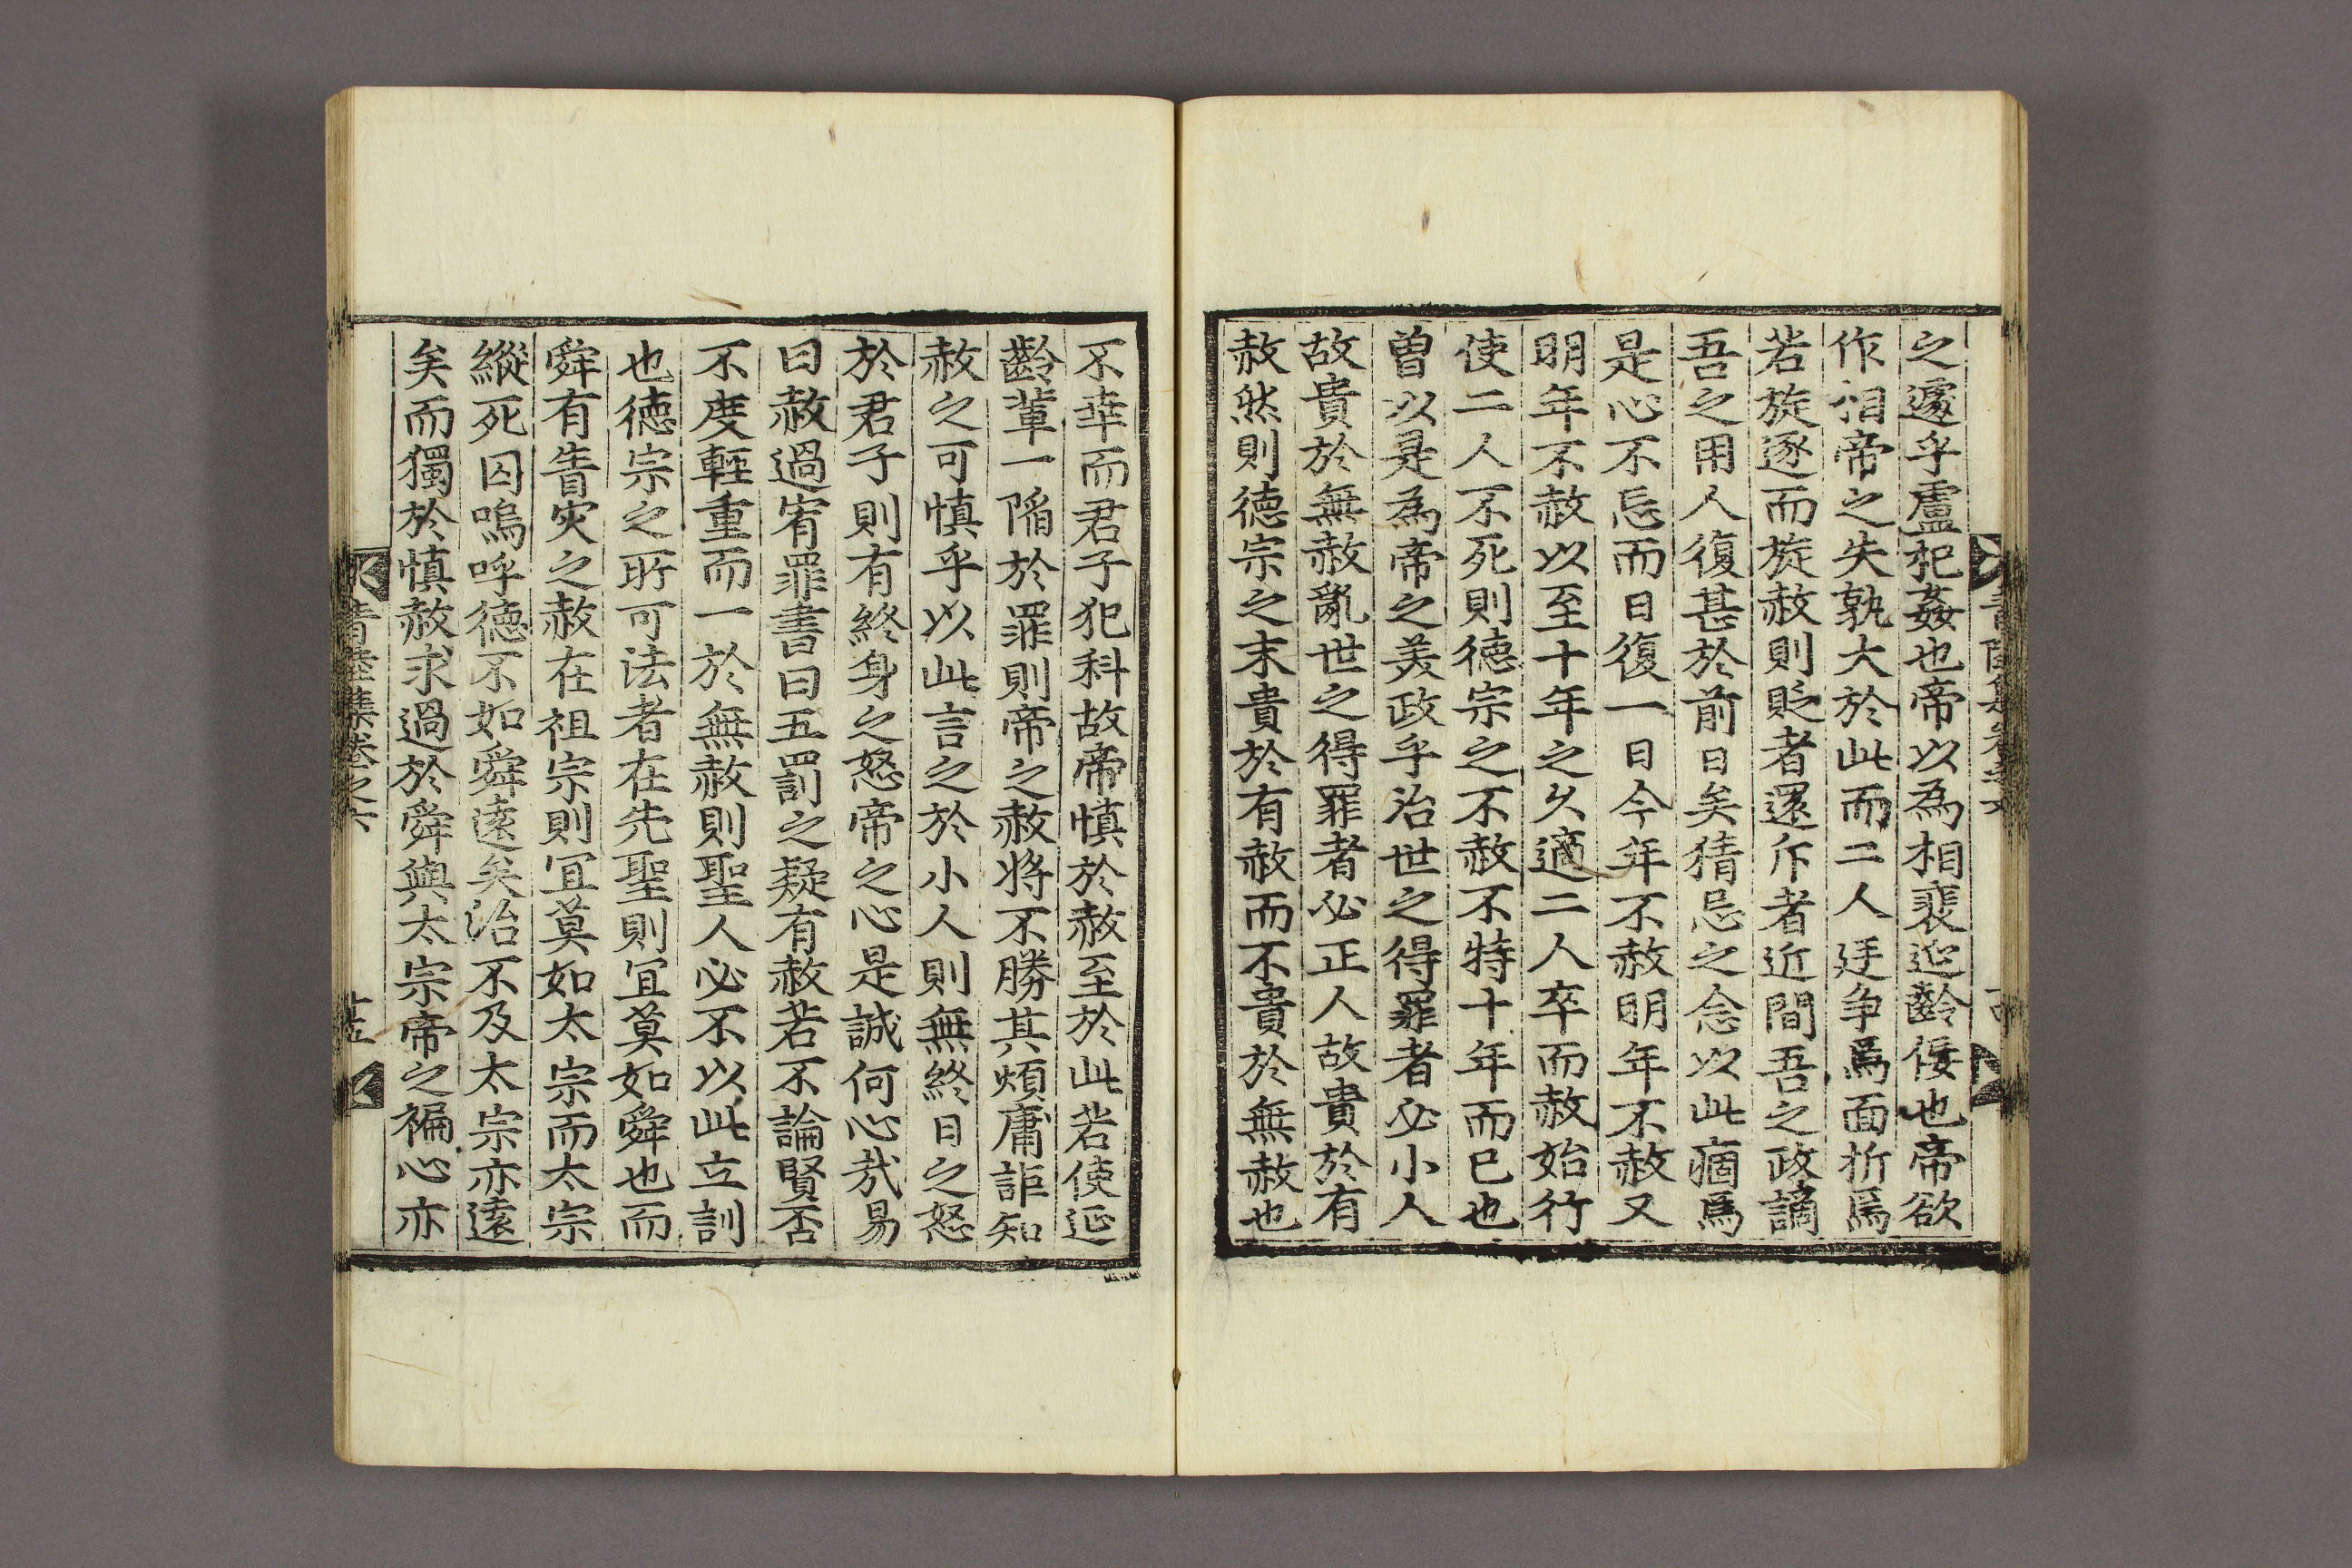 之遽乎盧杞姦也帝以為相裴延齡佞也帝欲
作相帝之失孰大於此而二人廷争爲面折爲
若旋逐而旋赦則貶者還斥者近間吾之政謫
吾之用人復甚於前日矣猜忌之念以此痼爲
是心不忘而日復一日今年不赦明年不赦又
明年不赦以至十年之久適二人卒而赦始行
使二人不死則德宗之不赦不特十年而已也
曽以是為帝之美政乎治世之得罪者必小人
故貴於無赦亂世之得罪者必正人故貴於有
赦然則德宗之末貴於有赦而不貴於無赦也
不幸而君子犯科故帝慎於赦至於此若使延
齡軰一陷於罪則帝之赦将不勝其煩庸詎知
赦之可慎乎以此言之於小人則無終日之怒
於君子則有終身之怒帝之心是誠何心㢤易
曰赦過宥罪書曰五罰之疑有赦若不論賢否
不度輕重而一於無赦則聖人必不以此立訓
也德宗之所可法者在先聖則冝莫如舜也而
舜有眚灾之赦在祖宗則冝莫如太宗而太宗
縱死囚嗚呼德不如舜遠矣治不及太宗亦遠
矣而獨於慎赦求過於舜與太宗帝之褊心亦
青陸集卷之六